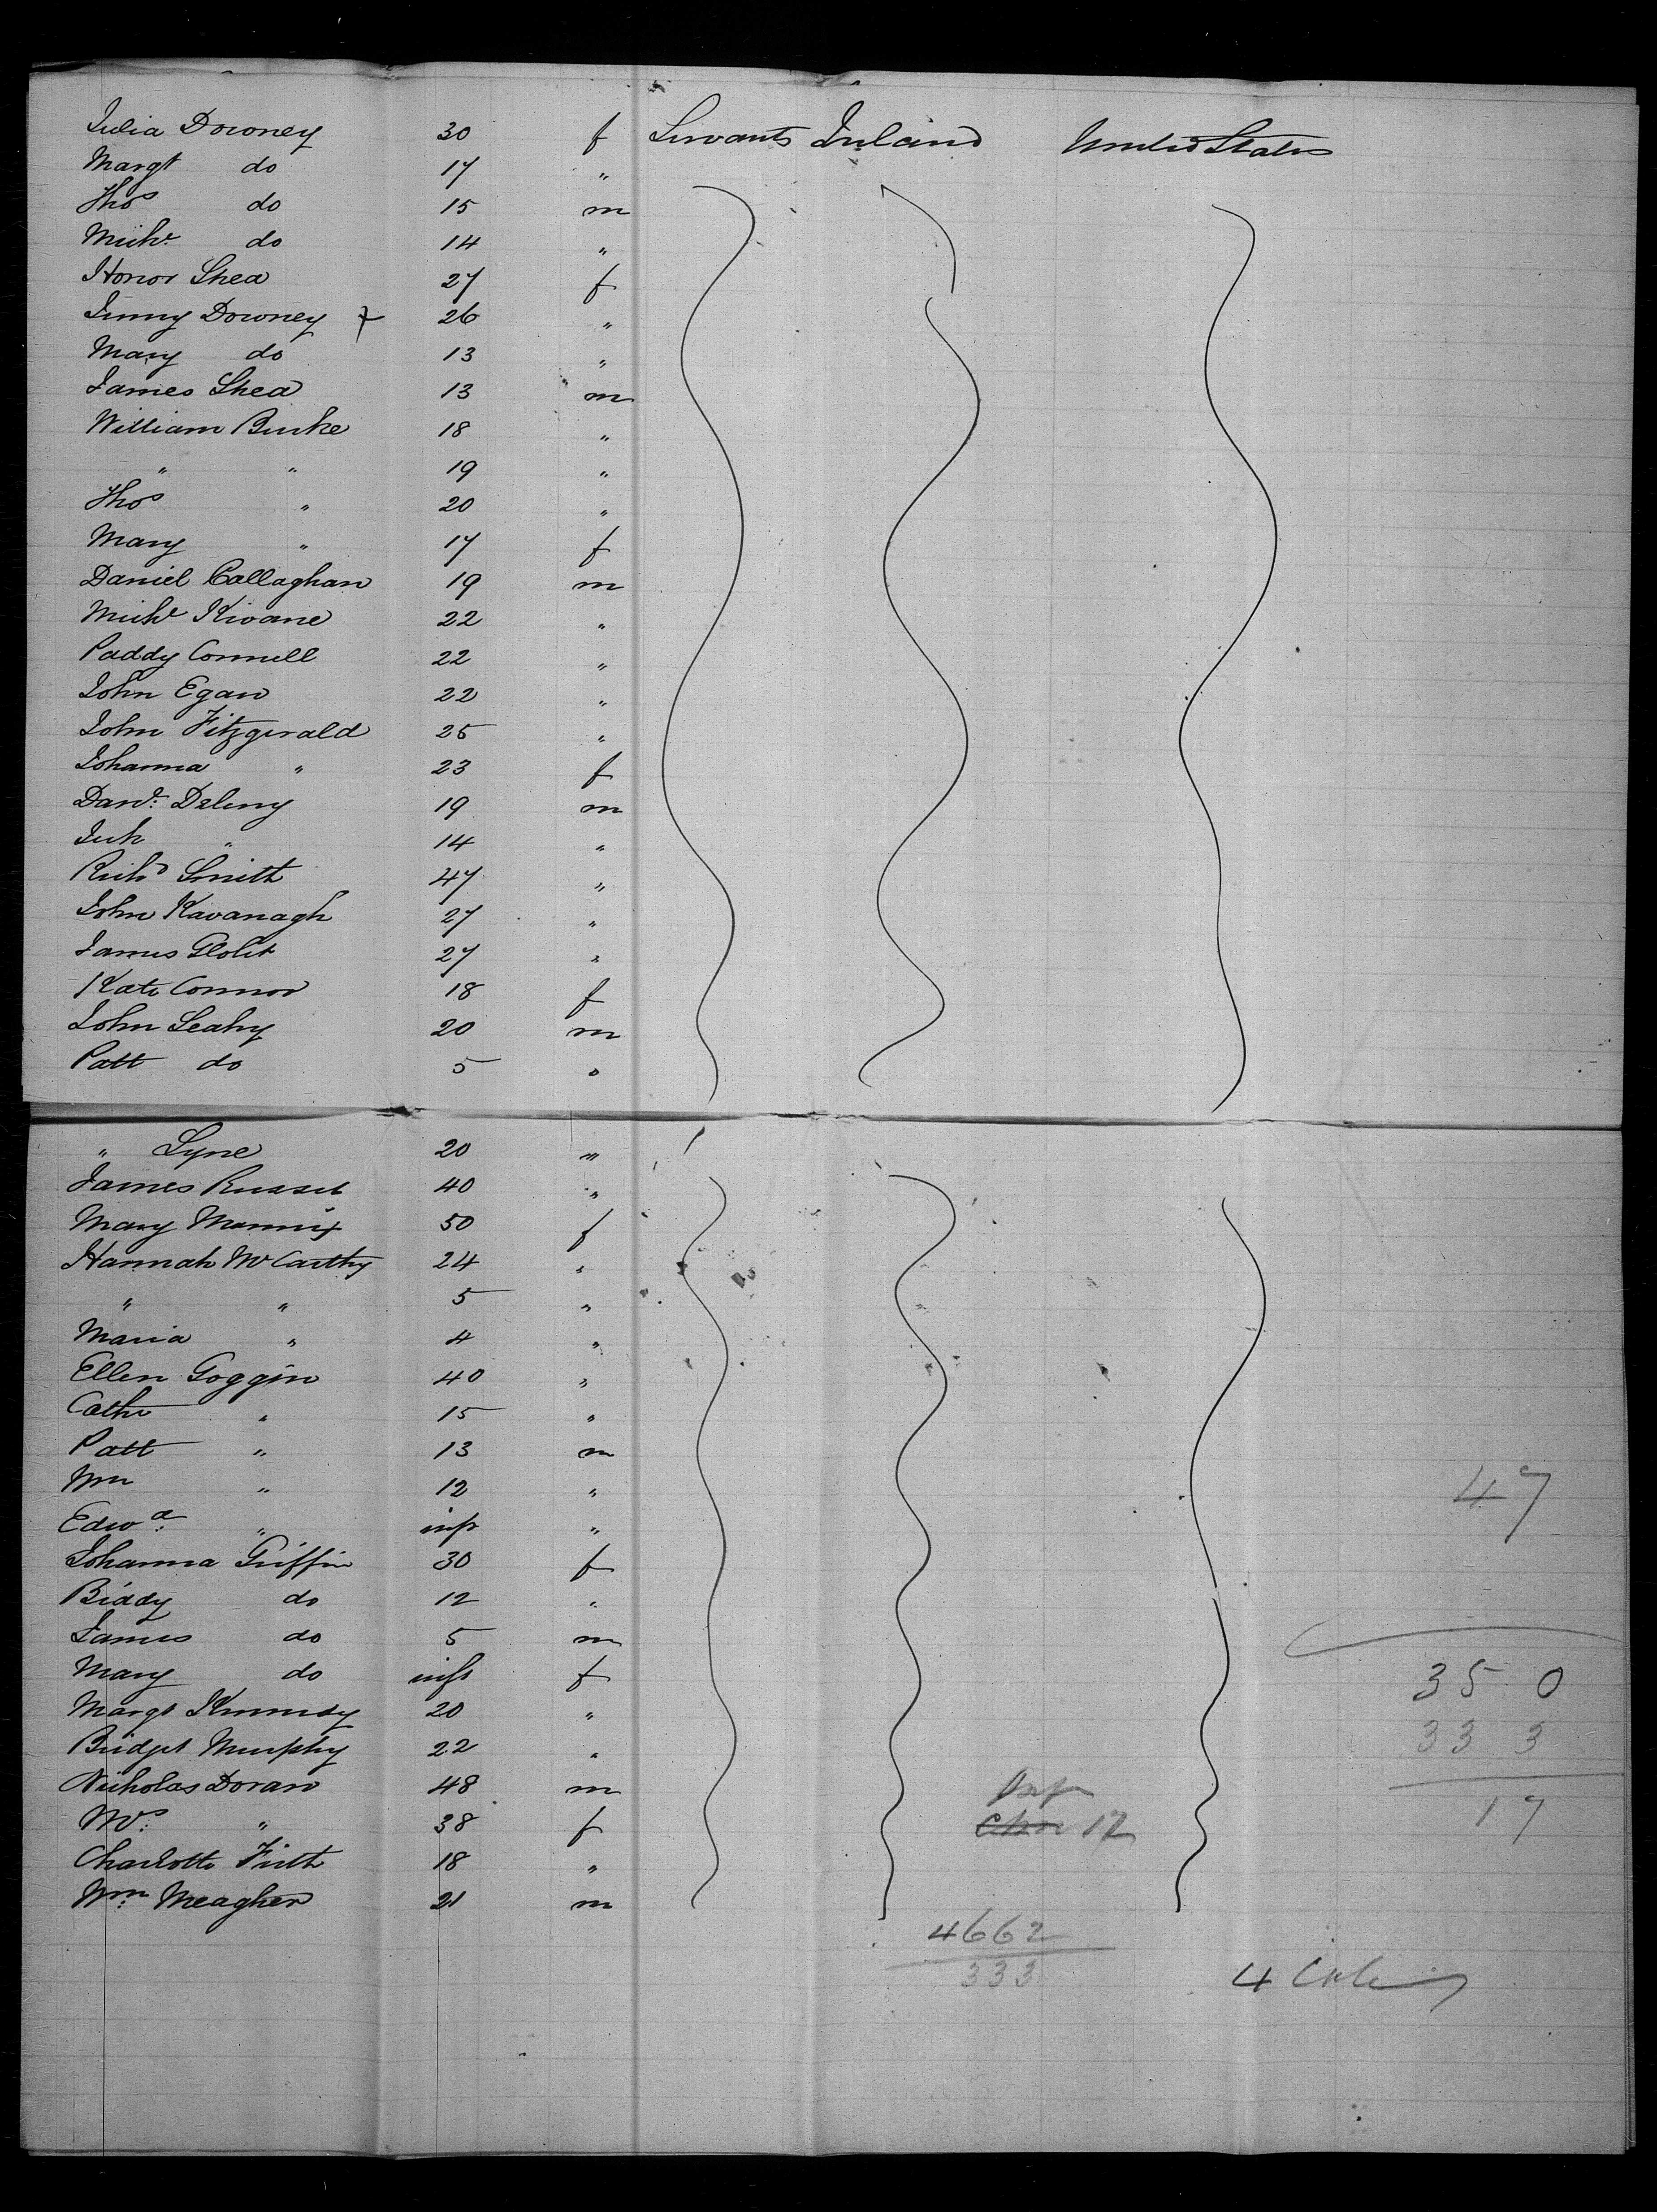 Julia Downey 30 f Servants Ireland United States
Margt do 17 "
Thos do 15 m
Michl do 14 "
Honor Shea 27 f
Jenny Downey 26 "
Mary do 13 "
James Shea 13 m
William Burke 18 "
" " 19 "
Thos " 20 "
Mary " 17 f
Daniel Callaghan 19 m
Michl Kivane 22 "
Paddy Connell 22 "
John Egan 22 "
John Fitzgerald 25 "
Johanna " 23 f
Danl. Deleny 19 m
" 14 "
Richd Smith 47 "
John Kavanagh 27 "
James 27 "
Kate Connor 18 f
John Leahy 20 m
Patt do 5 "
" Lyne 20 "
James Russel 40 "
Mary Mannix 50 f
Hannah McCarthy 24 "
" " 5 "
Maria " 4 "
Ellen Goggin 40 "
Cathe " 15 "
Patt " 13 m
Wm " 12 "
Edwd. " inft "
Johanna Griffin 30 f
Biddy do 12 "
James do 5 m
Mary do inft f
Margt Kennedy 20 "
Bridget Murphy 22 "
Nicholas Doran 48 m
Mrs. " 38 f
Charlotte Firth 18 "
Wm. Meagher 21 m
47
350
333
17
17
4662
333
4